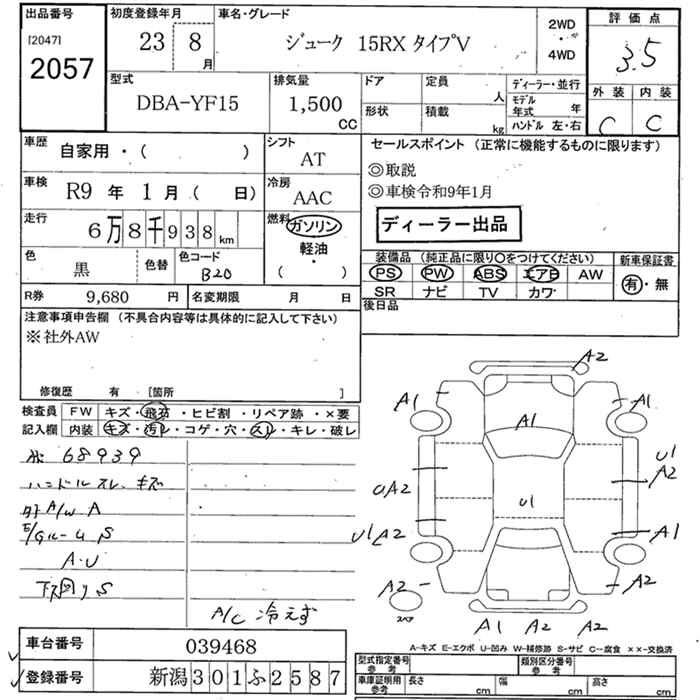 出品番号
[2047]
2057
初度登録年月
23 8 月
車名・グレード
ジューク 15RX タイプV
2WD
・
4WD
評価点
3.5
外装 内装
C C
型式
DBA-YF15
排気量
1,500
CC
ドア
形状
定員
人
積載
kg
ディーラー・並行
モデル年式 年
ハンドル 左・右
車歴
自家用・( )
シフト
AT
車検
R9 年 1 月 ( 日)
冷房
AAC
走行
6万8千938 km
燃料
ガソリン
軽油
・
( )
色
黒
色替
色コード
B20
R券 9,680 円
名変期限 月 日
セールスポイント (正常に機能するものに限ります)
◎取説
◎車検令和9年1月
ディーラー出品
装備品 (純正品に限り○をつけてください)
PS PW ABS エアB AW
SR ナビ TV カワ
新車保証書
有・無
後日品
注意事項申告欄 (不具合内容等は具体的に記入して下さい)
※社外AW
修復歴 有 [箇所 ]
検査員 FW キズ・飛石・ヒビ割・リペア跡・×要
記入欄 内装 キズ・汚レ・コゲ・穴・スレ・キレ・破レ
68939
ハンドルスレ、キズ
A/W A
E/Gルーム S
A・U
下回り S
A/C 冷えず
A2
A1
A1
A1
U1
A2
UA2
U1
U1 A2
A1
A2
スペア
A2
A1 A2 A2
車台番号 039468
登録番号 新潟301ふ2587
A-キズ E-エクボ U-凹み W-補修跡 S-サビ C-腐食 ××-交換済
型式指定番号
参考
類別区分番号
参考
車庫証明用
参考
長さ cm
幅 cm
高さ cm